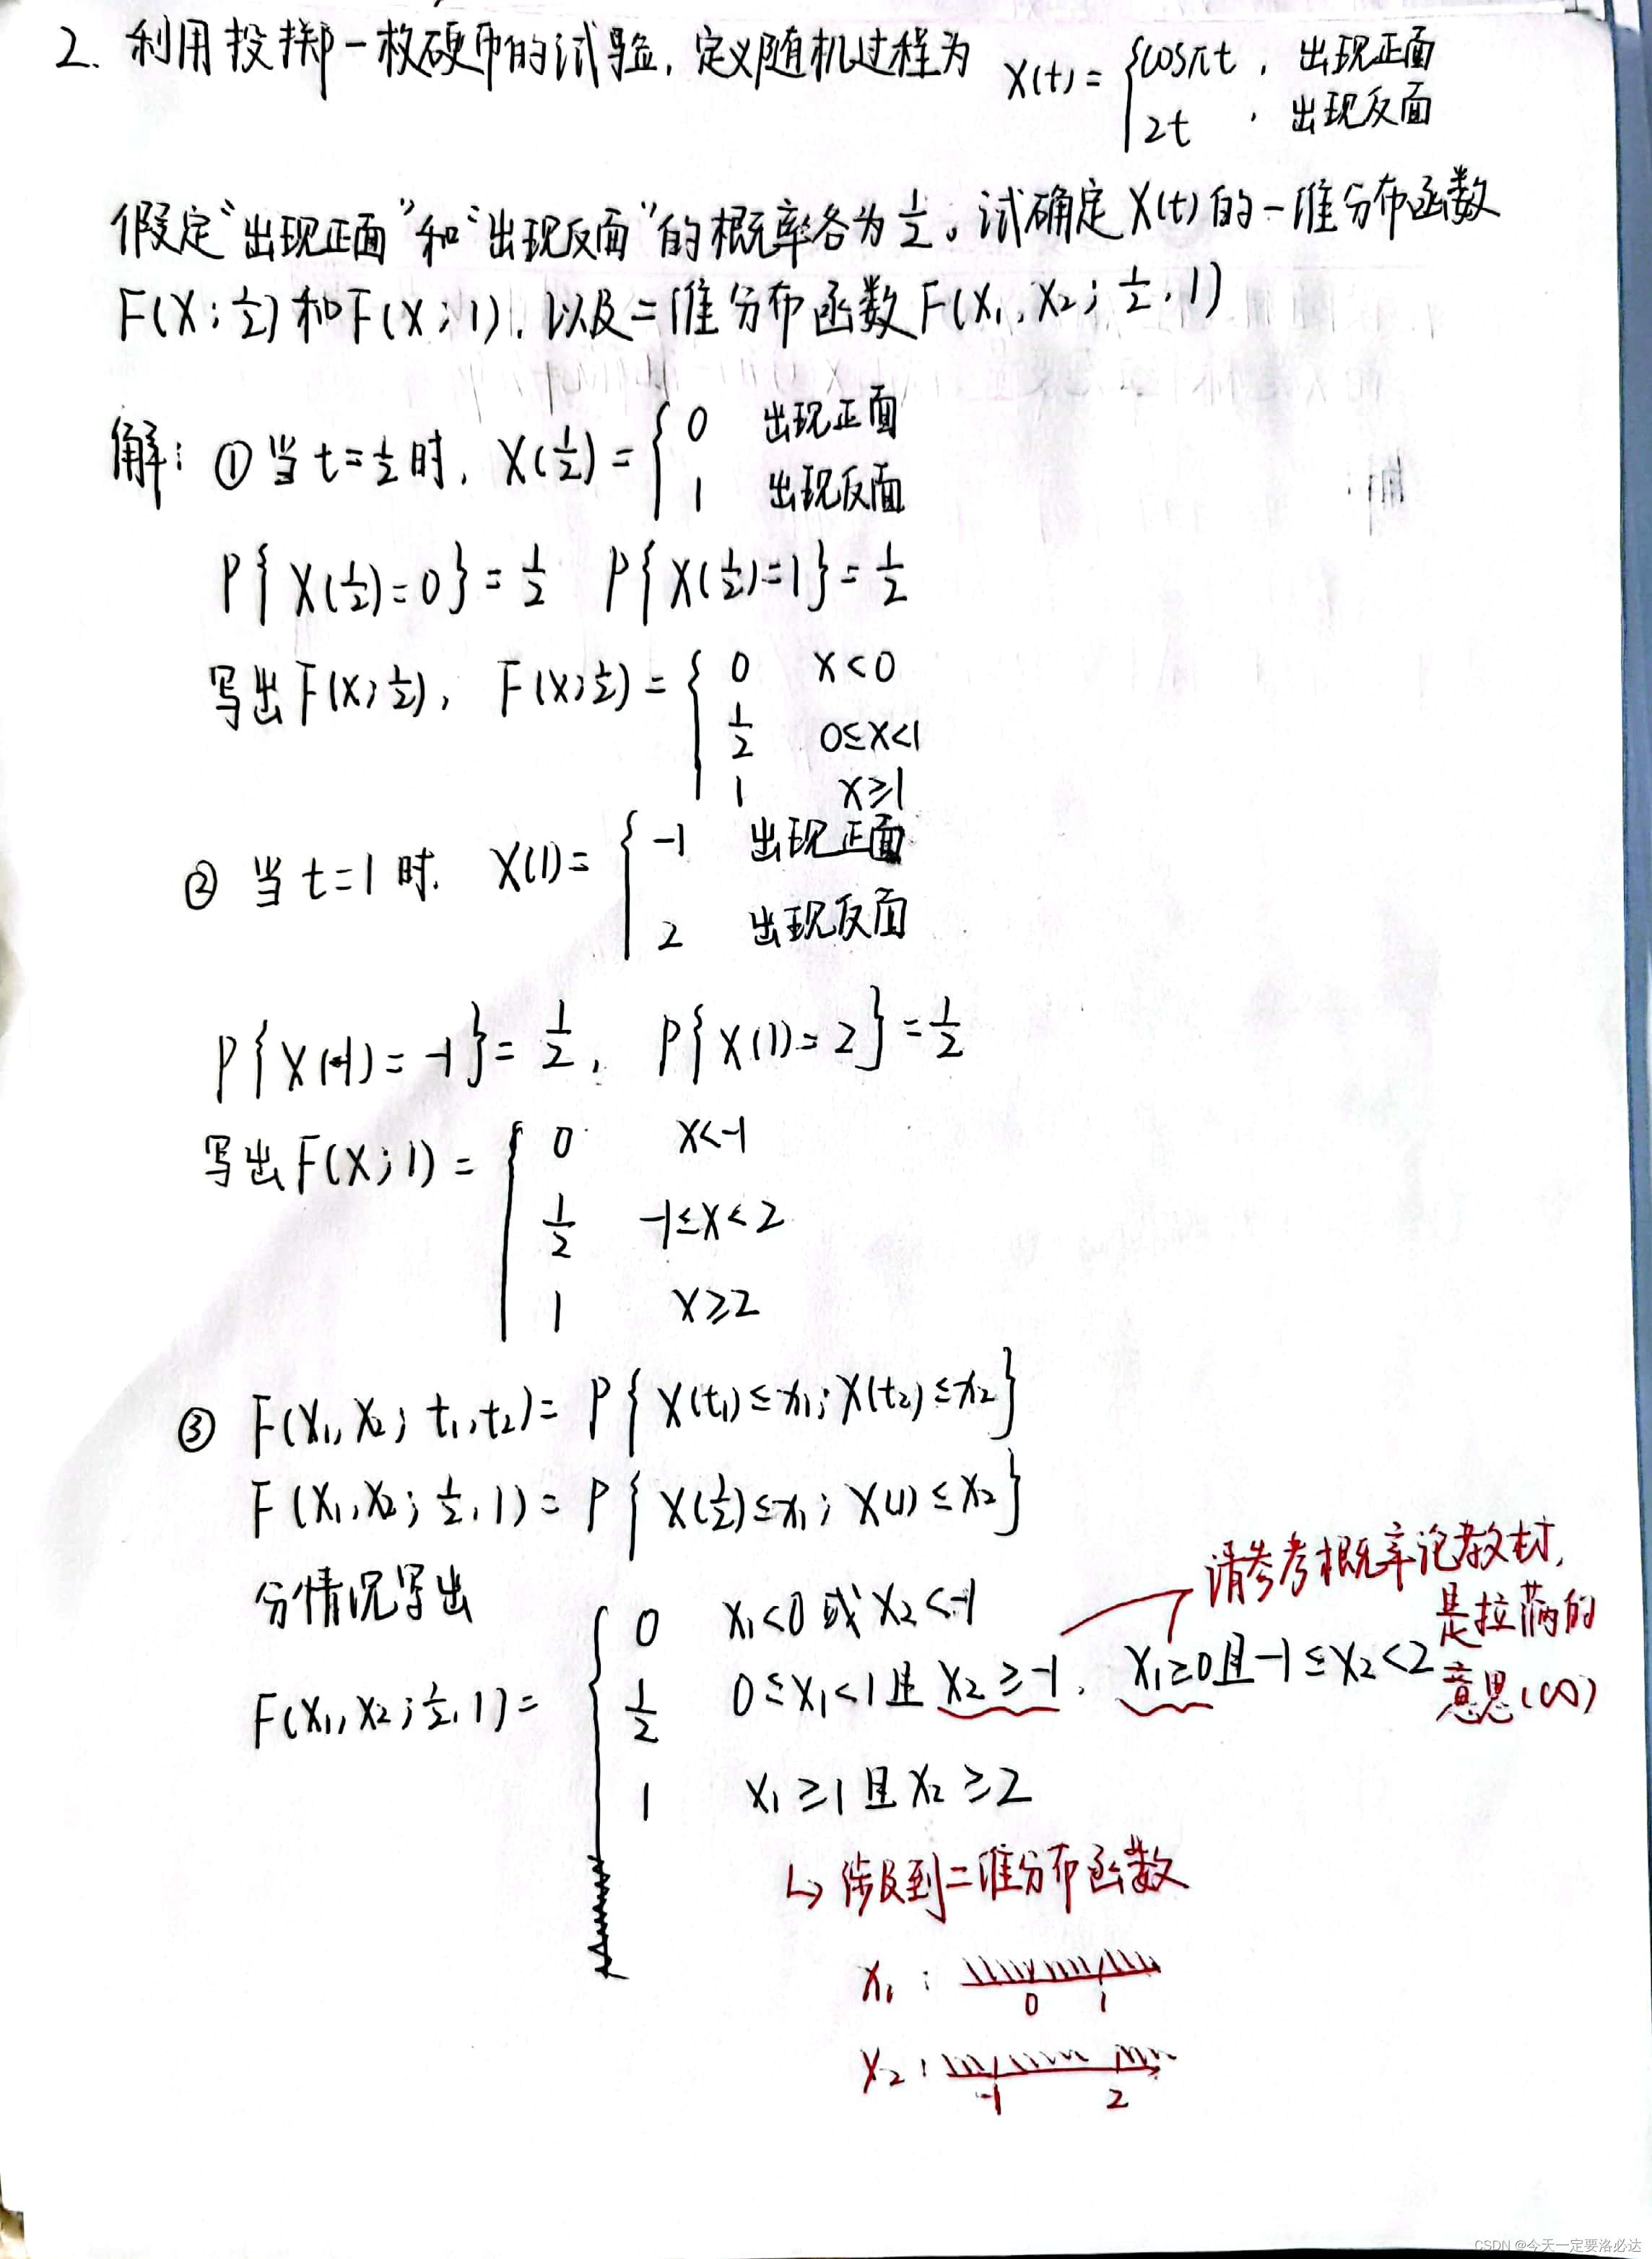 2. 利用投掷一枚硬币的试验, 定义随机过程为 X(t) = { cosπt, 出现正面
2t , 出现反面
假定“出现正面”和“出现反面”的概率各为 1/2。试确定X(t)的一维分布函数
F(X; 1/2) 和 F(X; 1), 以及二维分布函数 F(X₁, X₂; 1/2, 1)
解: ① 当 t = 1/2 时, X(1/2) = { 0 出现正面
1 出现反面
P{X(1/2)=0} = 1/2 P{X(1/2)=1} = 1/2
写出F(X; 1/2), F(X; 1/2) = { 0 X<0
1/2 0≤X<1
1 X≥1
② 当 t=1 时, X(1) = { -1 出现正面
2 出现反面
P{X(1) = -1} = 1/2, P{X(1)=2} = 1/2
写出F(X; 1) = { 0 X<-1
1/2 -1≤X<2
1 X≥2
③ F(X₁, X₂; t₁, t₂) = P{X(t₁)≤x₁; X(t₂)≤x₂}
F(X₁, X₂; 1/2, 1) = P{X(1/2)≤x₁; X(1)≤X₂}
请参考概率论教材,
是拉满的
意思(∞)
分情况写出
F(X₁, X₂; 1/2, 1) = { 0 X₁<0 或 X₂<-1
1/2 0≤X₁<1且 X₂≥-1, X₁≥0且-1≤X₂<2
1 X₁≥1且X₂≥2
↳ 涉及到二维分布函数
X₁:
0 1
X₂:
-1 2
CSDN @今天一定要洛必达